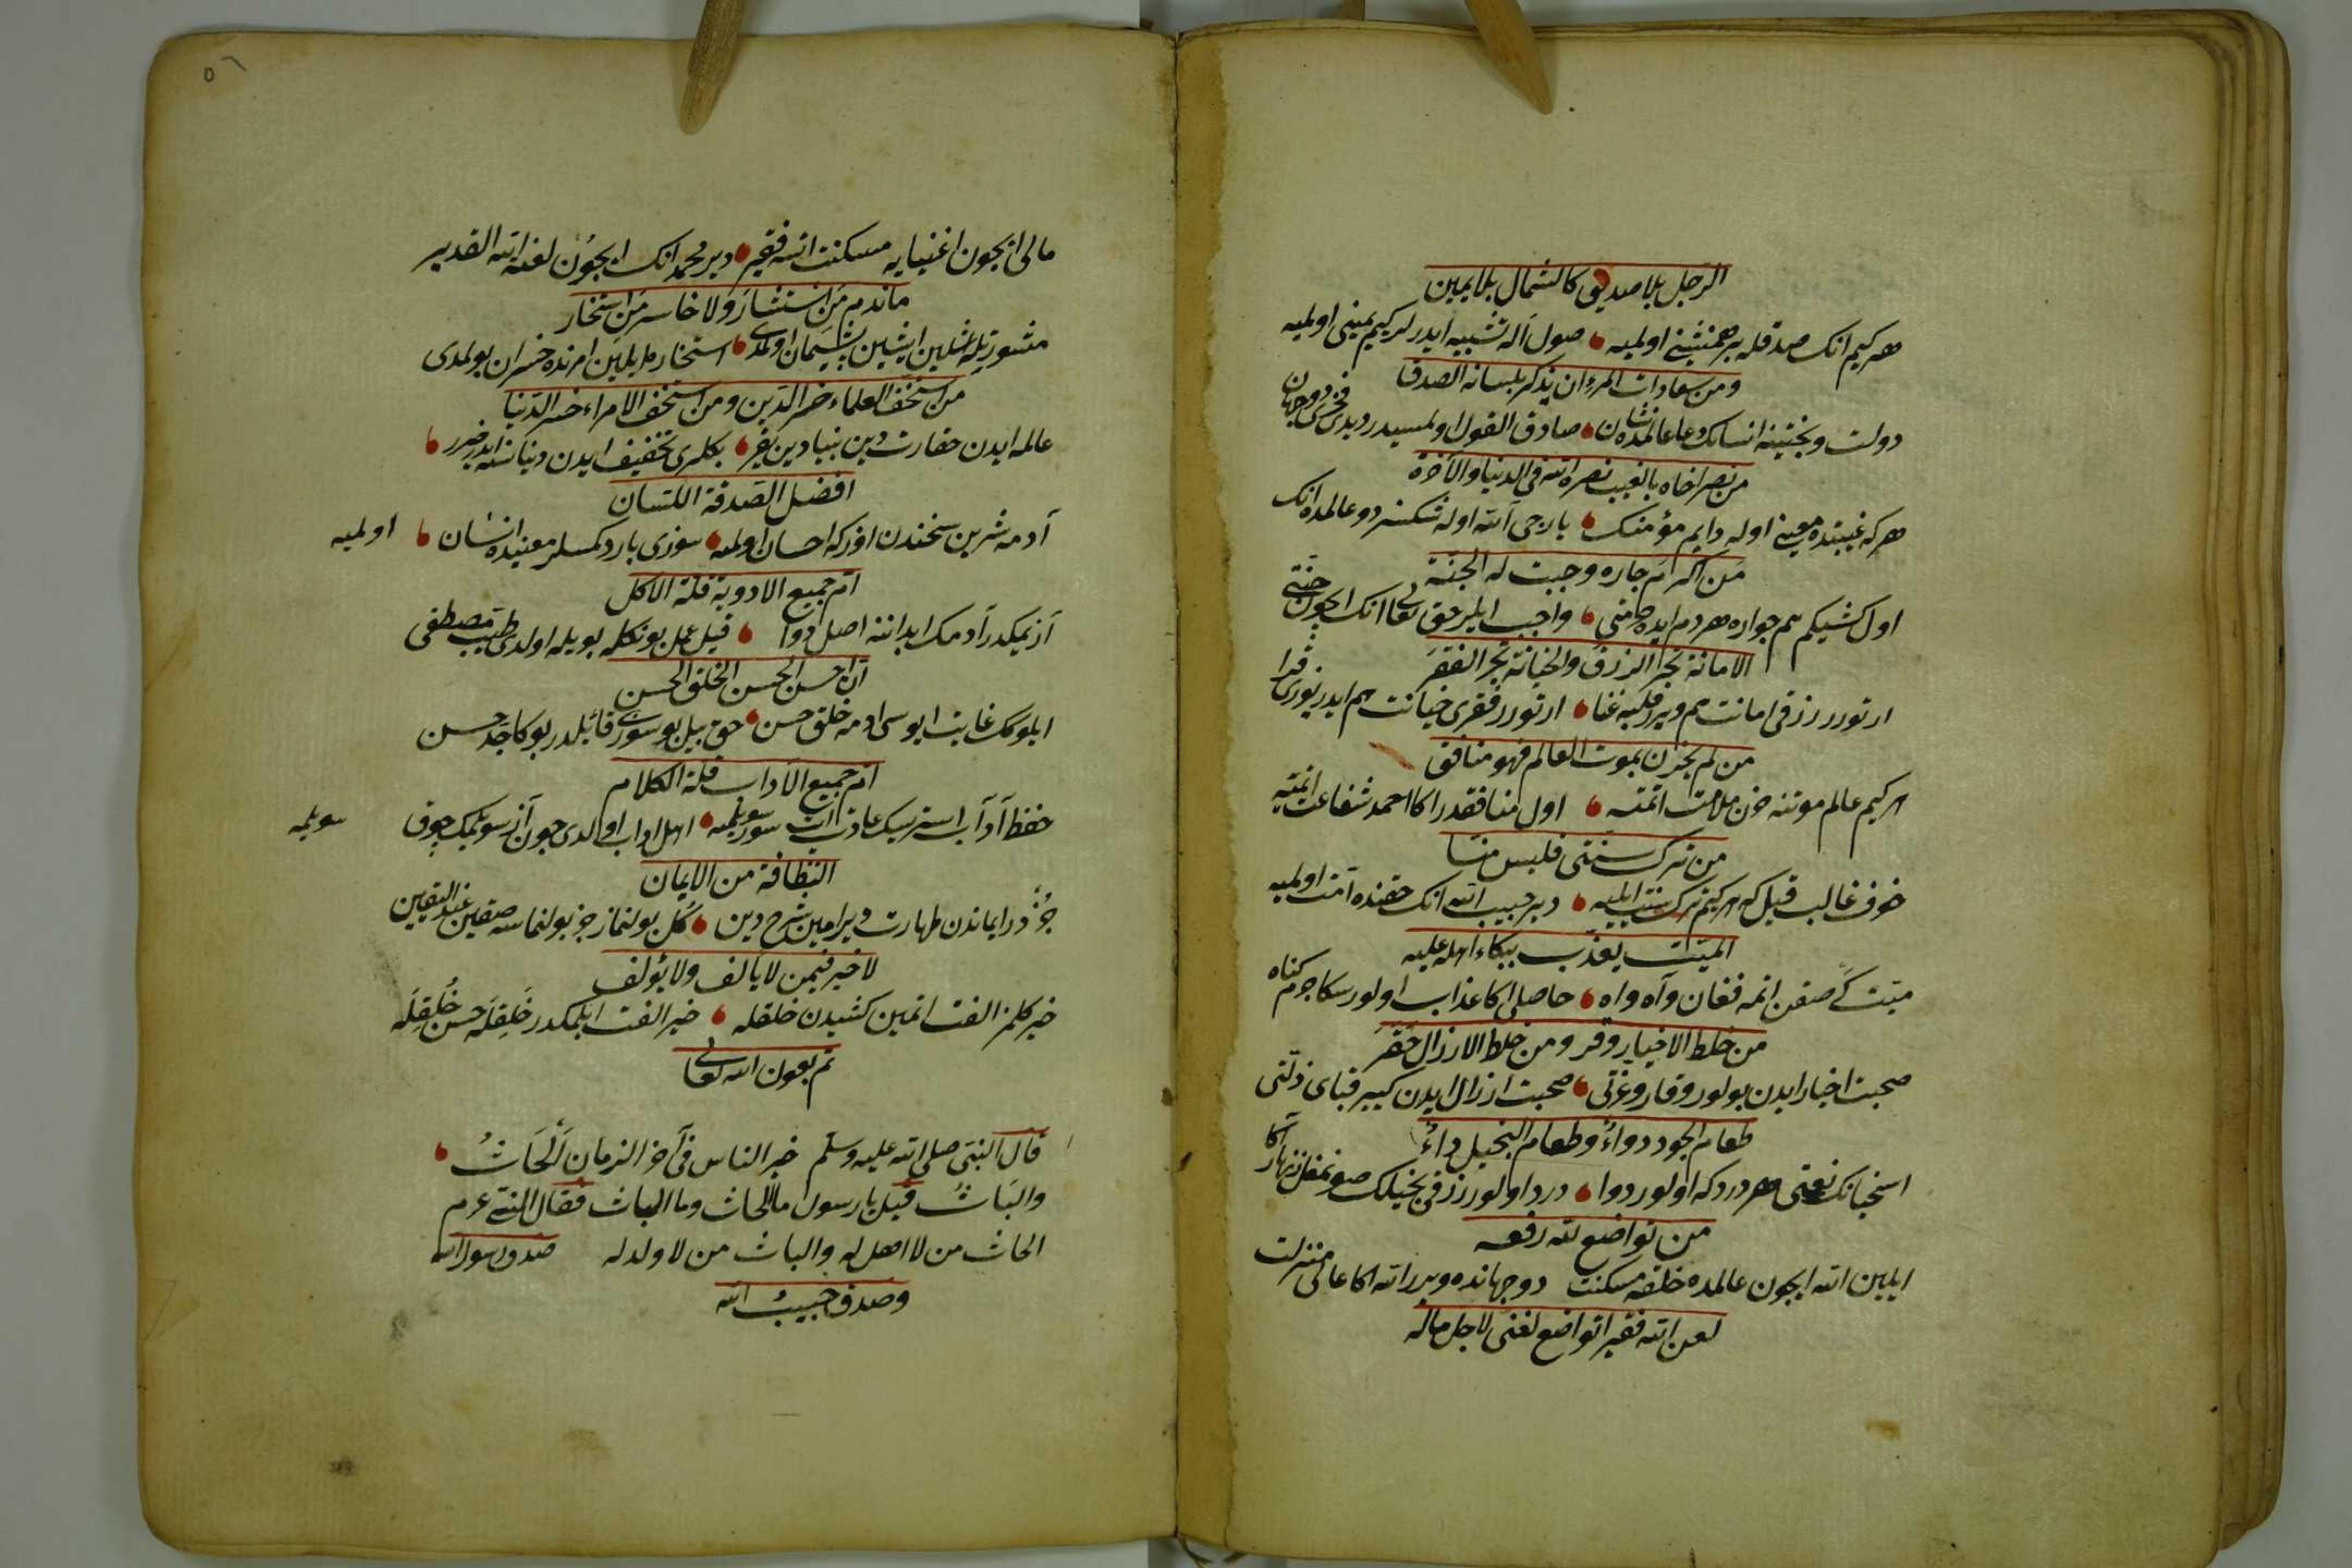 الرجل بلا صديق كالشمال بلا يمين
هر كيم انك صدقله بر همنشينى اولميه صول اله تشبيه ايدرلر كيم يمينى اولميه
ومن سعادات المرء ان يذكر بلسانه الصدق
دولت وبختينه انسانك عالمده نشان صادق القول اولمسيدر ديدى فخر دو جهان
من نصر اخاه بالغيب نصره الله فى الدنيا والآخرة
هر كه غيبتده معينى اوله دايم مؤمنك ياردجى الله اوله شكسز دو عالمده انك
من اكرم جاره وجبت له الجنة
اول كشيكم هم جواره هر دم ايده واجب ايلر حق تعالى انك ايچون جنتى
الامانة تجر الرزق والخيانة تجر الفقر
ارتورر رزقى امانت هم ويرر قلبه غنا ارتورر فقرى خيانت هم ايدر
من لم يحزن بموت العالم فهو منافق
هر كيم عالم موتنه حزن ملامت اتمه اول منافقدر اكا احمد شفاعت اتميه
من ترك سنتى فليس منا
خوف غالب قيل كه هر كيم ترك سنت ايليه دير حبيب الله انك حقنده امت اولميه
الميت يعذب ببكاء اهله عليه
ميت صقن اتمه فغان وآه واه حاصلى اكا عذاب اولور سكا جرم كناه
من خلط الاخيار وقر ومن خلط الارزال حقر
صحبت اخيار ايدن بولور وقار وعزتى صحبت ارزال ايدن كيير قباى ذلتى
طعام الجود دواء وطعام البخيل داء
اسخيانك نعمتى هر درده اولور دوا درد اولور رزقى بخيلك صونمغل زنهار اكا
من تواضع لله رفعه
ايلين الله ايچون عالمده خلقه مسكنت دو جهانده ويرر الله اكا عالى منزلت
لعن الله فقيرا تواضع لغنى لاجل ماله
مالى ايچون اغنيايه مسكنت اتسه فقير دير محمد انك ايچون لعنه الله القدير
ما ندم من استشار ولا خاسر من استخار
مشورتله اشلين ايشين پشيمان اولمدى استخاره ايلين امرنده خسران بولمدى
من استخف العلماء خسر الدين ومن استخف الامراء خسر الدنيا
عالمه ايدن حقارت دين بنيادين يقر بكلرى تخفيف ايدن دنياسنه ايدر ضرر
افضل الصدقة اللسان
آدمه شرين سخندن اوزكه احسان اولميه سوزى بارد كمسلر معنيده انسان اولميه
ام جميع الادوية قلة الاكل
آز يمكدر آدمك ابداننه اصل دوا قيل عمل بونكله بويله اولدى طب مصطفى
ان احسن الحسن الخلق الحسن
ايلوكك غايت ايوسى ادمه خلق حسن حق بيل بو سوزى قائلدر بوكا جد حسن
ام جميع الآداب قلة الكلام
حفظ آداب استرسك عادت ايت سوز سويلميه اهل اداب اولدى چون آز سويلمك چوق سويلميه
النظافة من الايمان
جزؤدر ايماندن طهارت دير امين شرح دين كل بولنماز جز بولنماسه صقين عند اليقين
لا خير فيمن لا يألف ولا يؤلف
خير كلمز الفت اتمين كشيدن خلقله خير الفت ايلمكدر خلقله حسن خلقله
تم بعون الله تعالى
قال النبى صلى الله عليه وسلم خير الناس فى آخر الزمان الحاث
والباث قيل يا رسول ما الحاث وما الباث فقال النبى عم
الحاث من لا اهل له والباث من لا ولد له صدق رسول الله
وصدق حبيب الله
٥٦